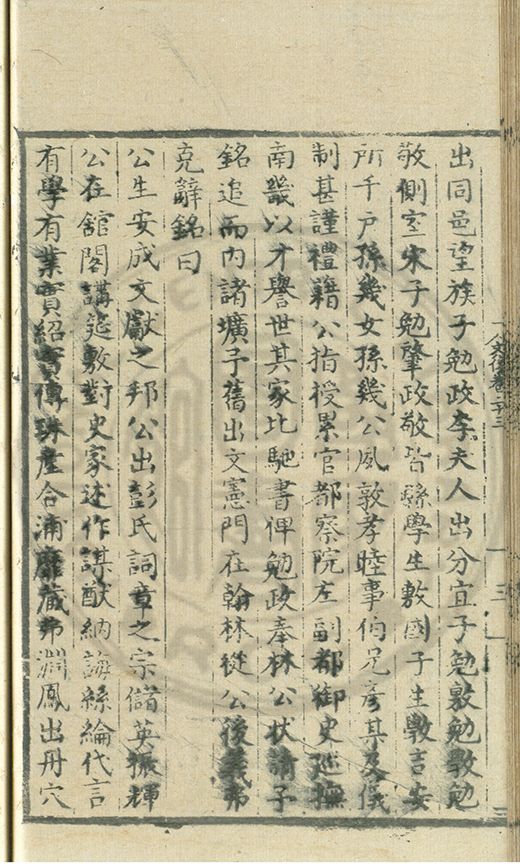 出同邑望族子勉政李夫人出分宜子勉敷勉斆勉
敬側室宋子勉肇政敬皆縣學生敷國子生斆吉安
所千戶孫幾女孫幾公夙敦孝睦事伯兄彥其及儀
制甚謹禮籍公指授累官都察院左副都御史廵撫
南畿以才譽世其家比馳書俾勉政奉林公狀請予
銘追而內諸壙予舊出文憲門在翰林從公後義弗
克辭銘曰
公生安成文獻之邦公出彭氏詞章之宗儲英振輝
公在舘閣講筵敷對史家述作謀猷納誨絲綸代言
有學有業實紹實傳珠產合浦靡藏弗淵鳳出丹穴